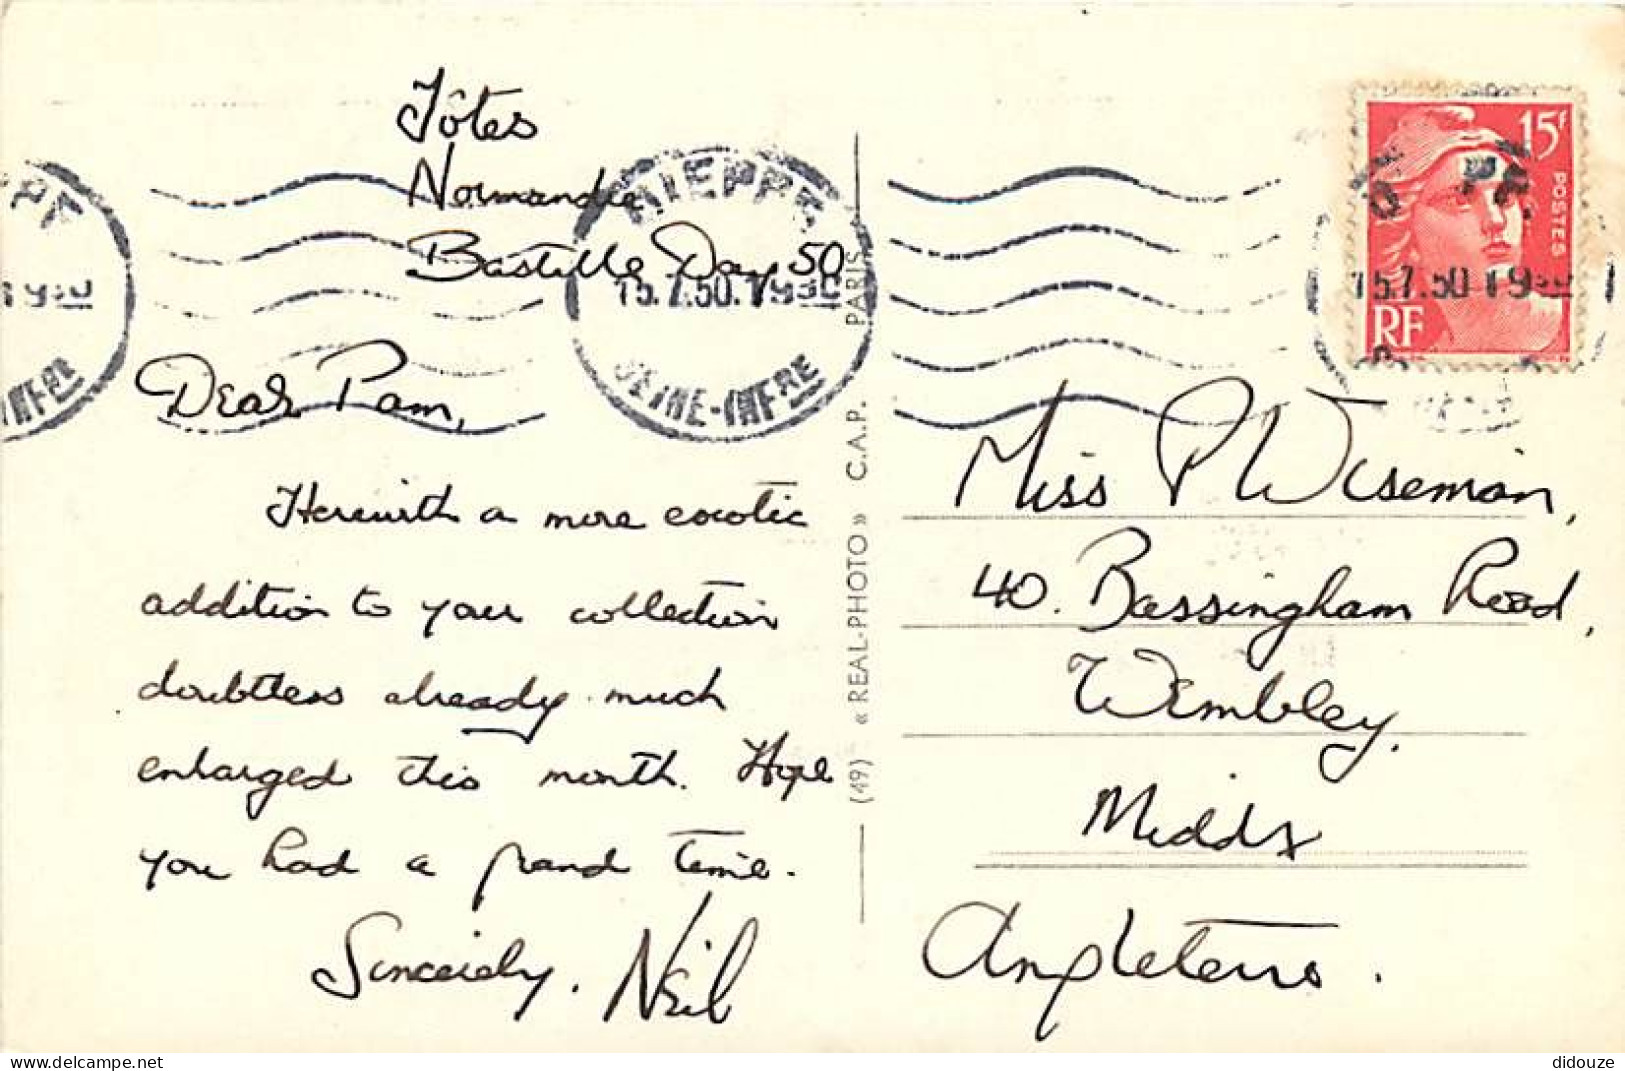 Tôtes
Normandie
Bastille Day 50
DIEPPE
15.7.50.1930
SEINE-INFRE
Dear Pam,
Herewith a more exotic
addition to your collection
doubtless already much
enlarged this month. Hope
you had a grand time.
Sincerely. Neil
(49) « REAL-PHOTO » C.A.P. PARIS
15F
POSTES
RF
15.7.50 1930
Miss P Wiseman,
40. Bassingham Road,
Wembley.
Middx
Angleterre.
delcampe.net
didouze